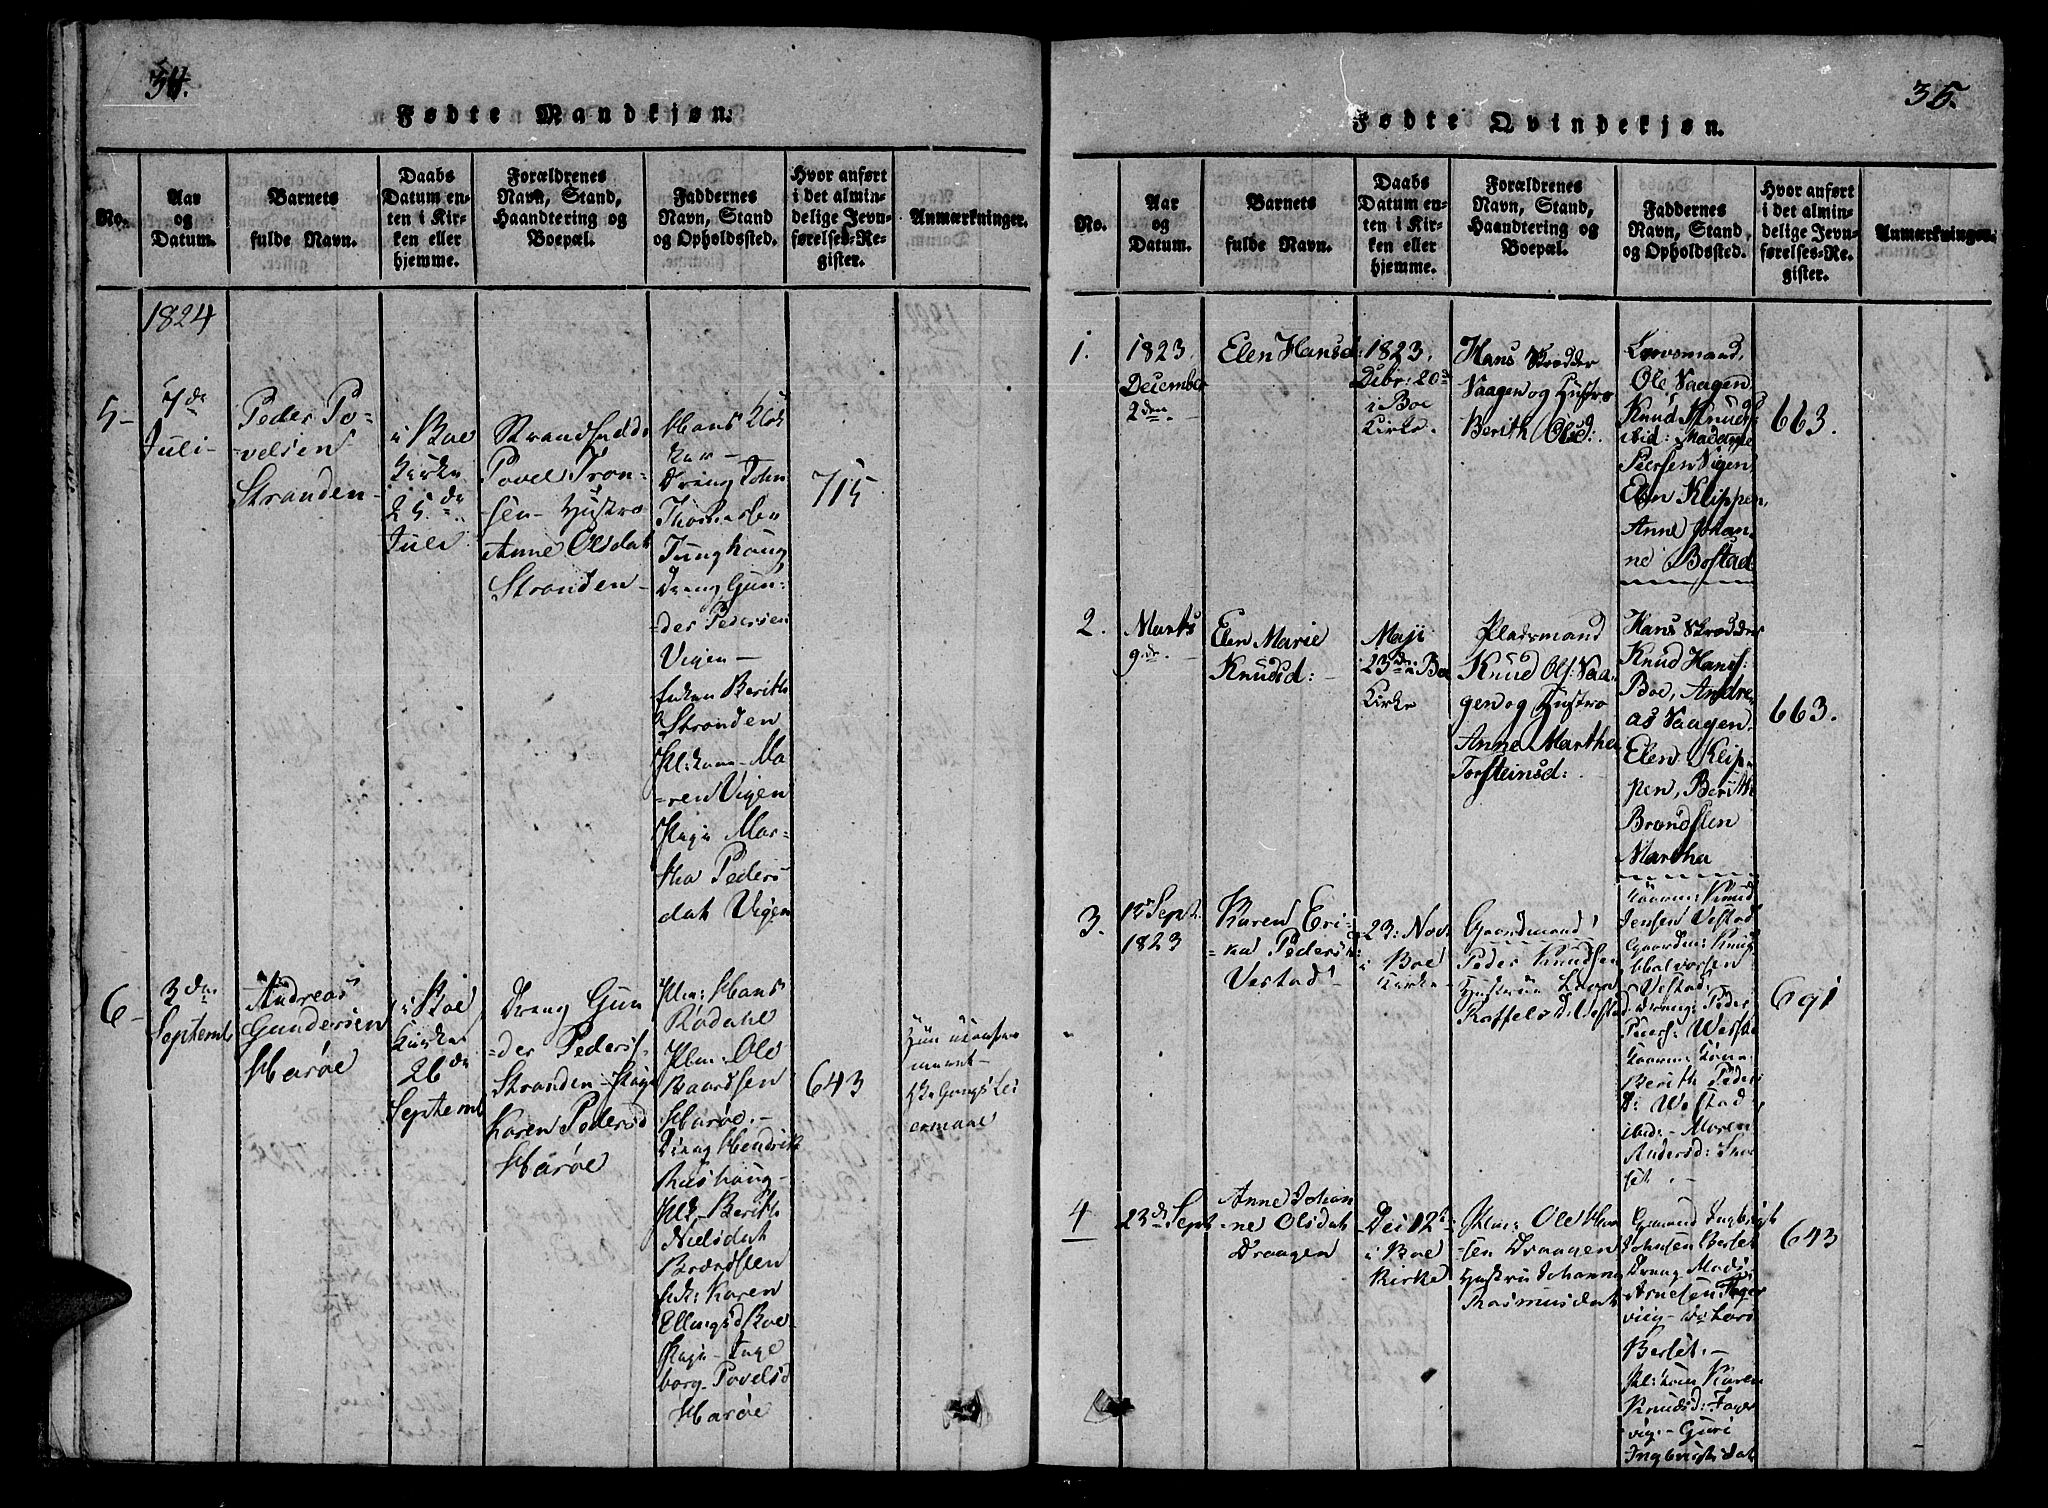 34.
Fødte Mandkjøn.
No.
Aar
og
Datum.
Barnets
fulde Navn.
Daabs
Datum en-
ten i Kir-
ken eller
hjemme.
Forældrenes
Navn, Stand,
Haandtering og
Boepæl.
Faddernes
Navn, Stand
og Opholdssted.
Hvor anført
i det almin-
delige Jevn-
førelses-Re-
gister.
Anmærkninger.
1824
5-
7de
Juli-
Peder Po-
-velsen
Stranden-
i Boe
Kirke
25de
Juli
Strandsidd:
Povel Tron-
sen- Hustro
Anne Olsdat
Stranden-
Hans
Dreng John
Thomassen
Tunghaug
Dreng Gun-
-der Pedersen
Vigen-
Enken Berith
Stranden
Ma
-ren Vigen
Pige Mar-
tha Peders
dat Vigen
6-
3den
Septemb
Andreas
Gundersen
Harøe
i Boe
Kirke
26de
Septemb
Dreng Gun
-der Peders.
Stranden- Pige
Karen Pedersd
Harøe
Hans
Rødahl
Ole
Baardsen
Harøe.-
Dreng Hendrik
Rushaug-
Berith
Nielsdat
Brandsten
Karen
Ellingsd Boe-
Pige- Inge
borg Povelsd
Harøe
643
715
35.
Fødte Qvindekjøn.
No.
Aar
og
Datum.
Barnets
fulde Navn.
Daabs
Datum en-
ten i Kir-
ken eller
hjemme.
Forældrenes
Navn, Stand,
Haandtering og
Boepæl.
Faddernes
Navn, Stand,
og Opholdssted.
Hvor anført
i det almin-
delige Jevn-
førelses-Re-
gister.
Anmærkninger.
1.
1823.
December
2den
Elen Hansd:
1823.
Debr: 20de
i Boe
Kirke.
Hans Skrædder
Vaagen og Hustro
Berith Olsd:
Lovsmand,
Ole Vaagen
Knud Knuds
ibid: Madame
Peersen Vigen
Elen Klippen,
Anne Johan-
ne Bostad
663.
2.
Marts
9de
Elen Marie
Knudsd:
Maji
23de i Boe
Kirke
Pladsmand
Knud Ols: Vaa-
gen og Hustro
Anne Martha
Torsteinsd:
Hans Skrædder
Knud Hans:
Boe, Andre-
as Vaagen
Elen Klip-
pen, Berith
Brandsten
Martha
663.
3.
12 Sept.
1823
Karen Eri-
-ka Pedersd:
Vestad
23: Nov.
i Boe
Kirke
Gaardmand
Peder Knudsen
Raffelsd. Vestad
Knud
Jensen Vestad
Halvorsen
Vestad
Dreng: Peder
Peers: Westad
Berith Peders
d: Westad
ibid:- Maren
Andersd:
691
4
23de Sept
Anne Johan
-ne Olsdat
Draagen
Dec 12te
i Boe
Kirke
Ole Han
sen Draagen
Hustru Johanna
Rasmusdat
Ingbrigt
Johnsen Berset
Dreng Mads
Arnesen Fager
viig- do Lars
Berset.-
Karen
Knudsd: Fager
viig- Guri
Ingbrigtsdat
643